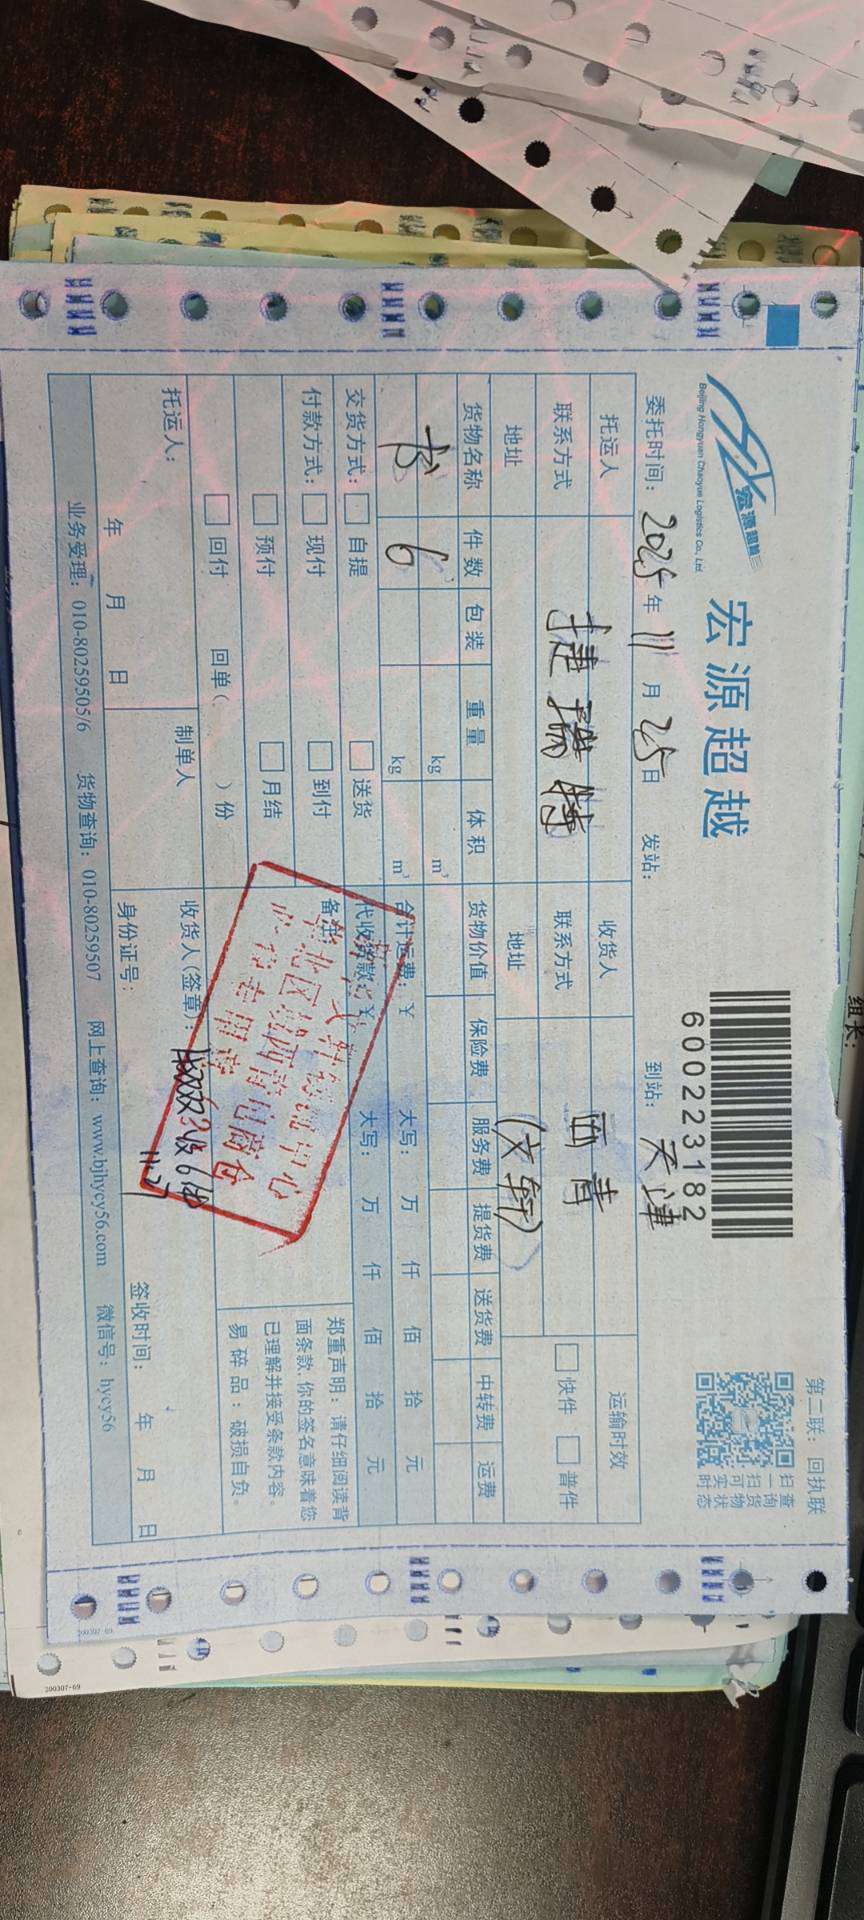 宏源超越
Beijing Hongyuan Chaoyue Logistics Co., Ltd.
宏源超越
600223182
第二联：回执联
扫一扫可实时
查询货物状态
委托时间：2025年11月25日 发站： 到站：天津
托运人 捷瑞特 收货人 西青 运输时效
联系方式 联系方式 (文轩) 快件 普件
地址 地址
货物名称 件数 包装 重量 体积 货物价值 保险费 服务费 提货费 送货费 中转费 运费
书 6 kg m³
kg m³ 合计运费：¥ 大写： 万 仟 佰 拾 元
交货方式： 自提 送货 代收货款：¥ 大写： 万 仟 佰 拾 元
付款方式： 现付 到付 备注：
预付 月结
回付 回单( )份
郑重声明：请仔细阅读背
面条款，你的签名意味着您
已理解并接受条款内容。
易碎品：破损自负。
托运人： 制单人 收货人(签章)：
年 月 日 身份证号： 签收时间： 年 月 日
业务受理：010-80259505/6 货物查询：010-80259507 网上查询：www.bjhycy56.com 微信号：hycy56
组长：
200307-69